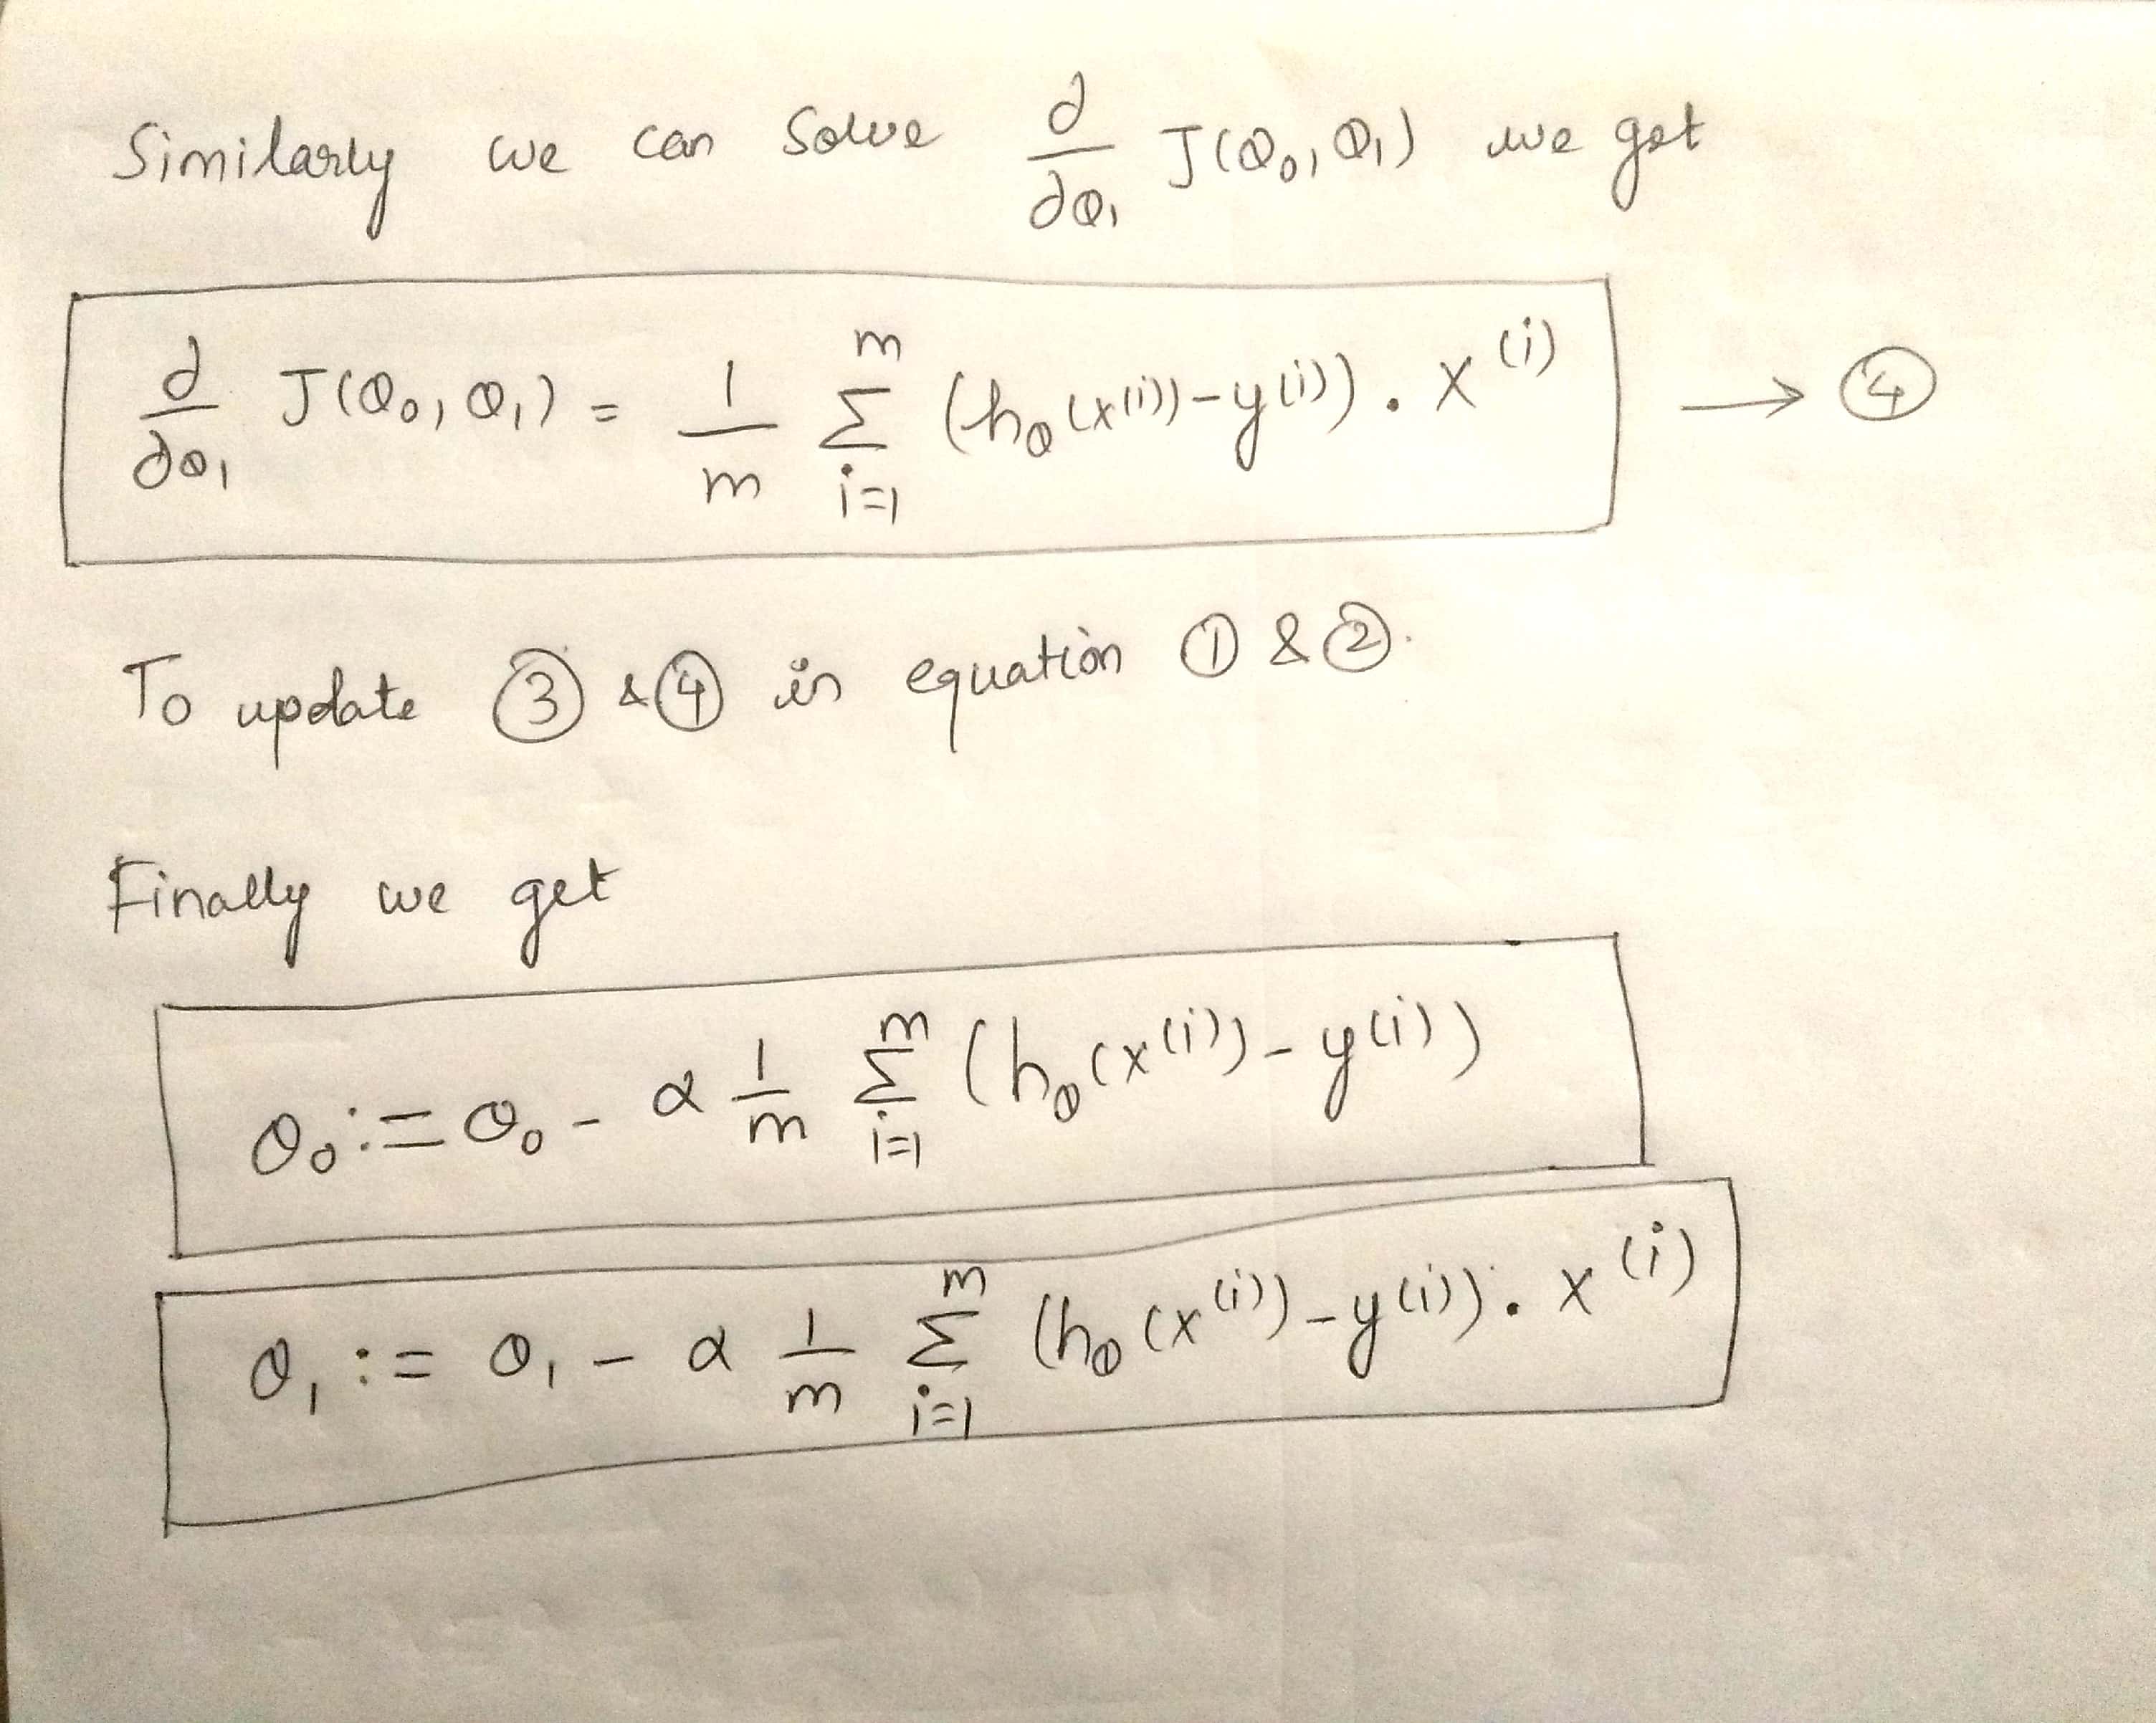 Similarly we can solve ∂/∂θ₁ J(θ₀, θ₁) we get
∂/∂θ₁ J(θ₀, θ₁) = 1/m Σ_{i=1}^{m} (h_θ(x^(i)) - y^(i)) . x^(i) → ④
To update ③ & ④ in equation ① & ②.
Finally we get
θ₀ := θ₀ - α 1/m Σ_{i=1}^{m} (h_θ(x^(i)) - y^(i))
θ₁ := θ₁ - α 1/m Σ_{i=1}^{m} (h_θ(x^(i)) - y^(i)) . x^(i)